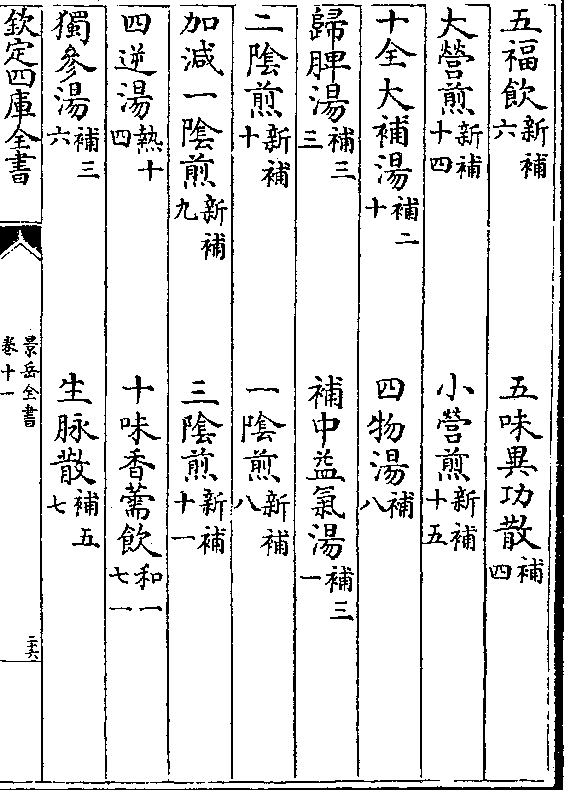 五福飲新補六　五味異功散補四
大營煎新補十四　小營煎新補十五
十全大補湯補二十　四物湯補八
歸脾湯補三三　補中益氣湯補三一
二陰煎新補十　一陰煎新補八
加減一陰煎新補九　三陰煎新補十一
四逆湯熱十四　十味香薷飲和一七一
獨參湯補三六　生脉散補五七
欽定四庫全書
景岳全書
卷十一